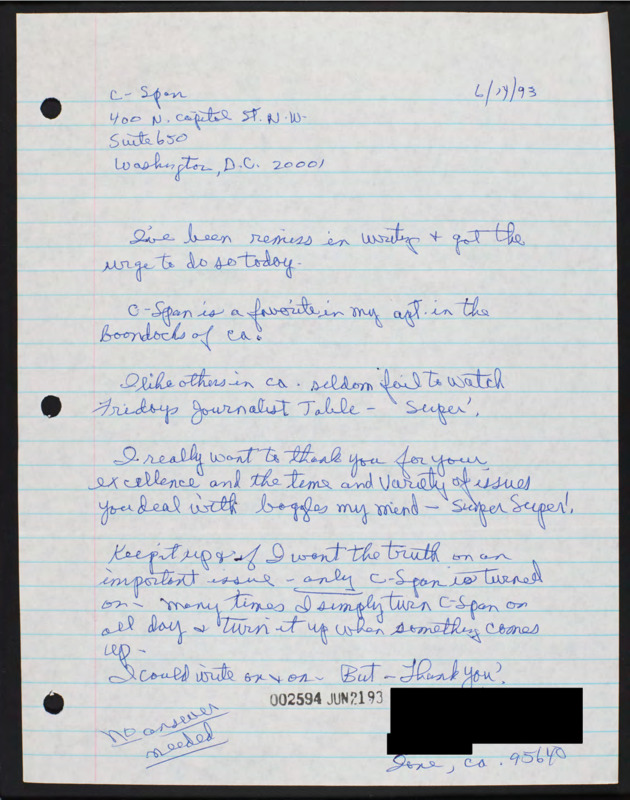 C-Span
6/14/93
400 N. Capitol St. N.W.
Suite 650
Washington, D.C. 20001
I've been remiss in writing + got the
urge to do so today.
C-Span is a favorite in my apt. in the
Boondocks of ca.
I like others in ca. seldom fail to watch
Fridays Journalist Table - Super!
I really want to thank you for your
excellence and the time and variety of issues
you deal with boggles my mind - Super Super!
Keep it up & if I want the truth on an
important issue - only C-Span is turned
on - many times I simply turn C-Span on
all day & turn it up when something comes
up -
I could write on + on - But - Thank You!
002594 JUN2193
no answer
needed
Ione, ca. 95640